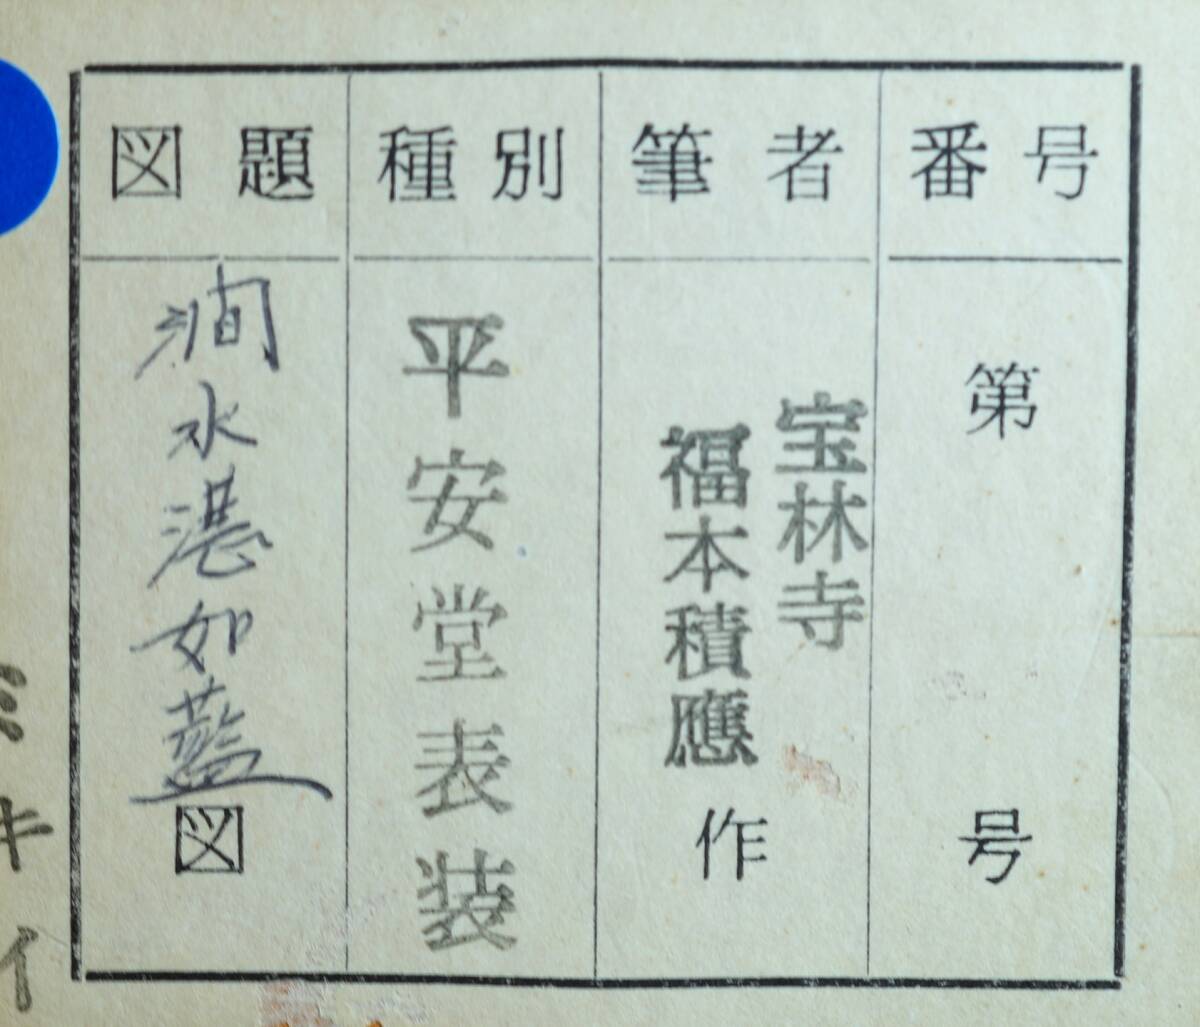 番号
第 号
筆者
宝林寺
福本積應
作
種別
平安堂表装
図題
澗水湛如藍
図
ミキイ